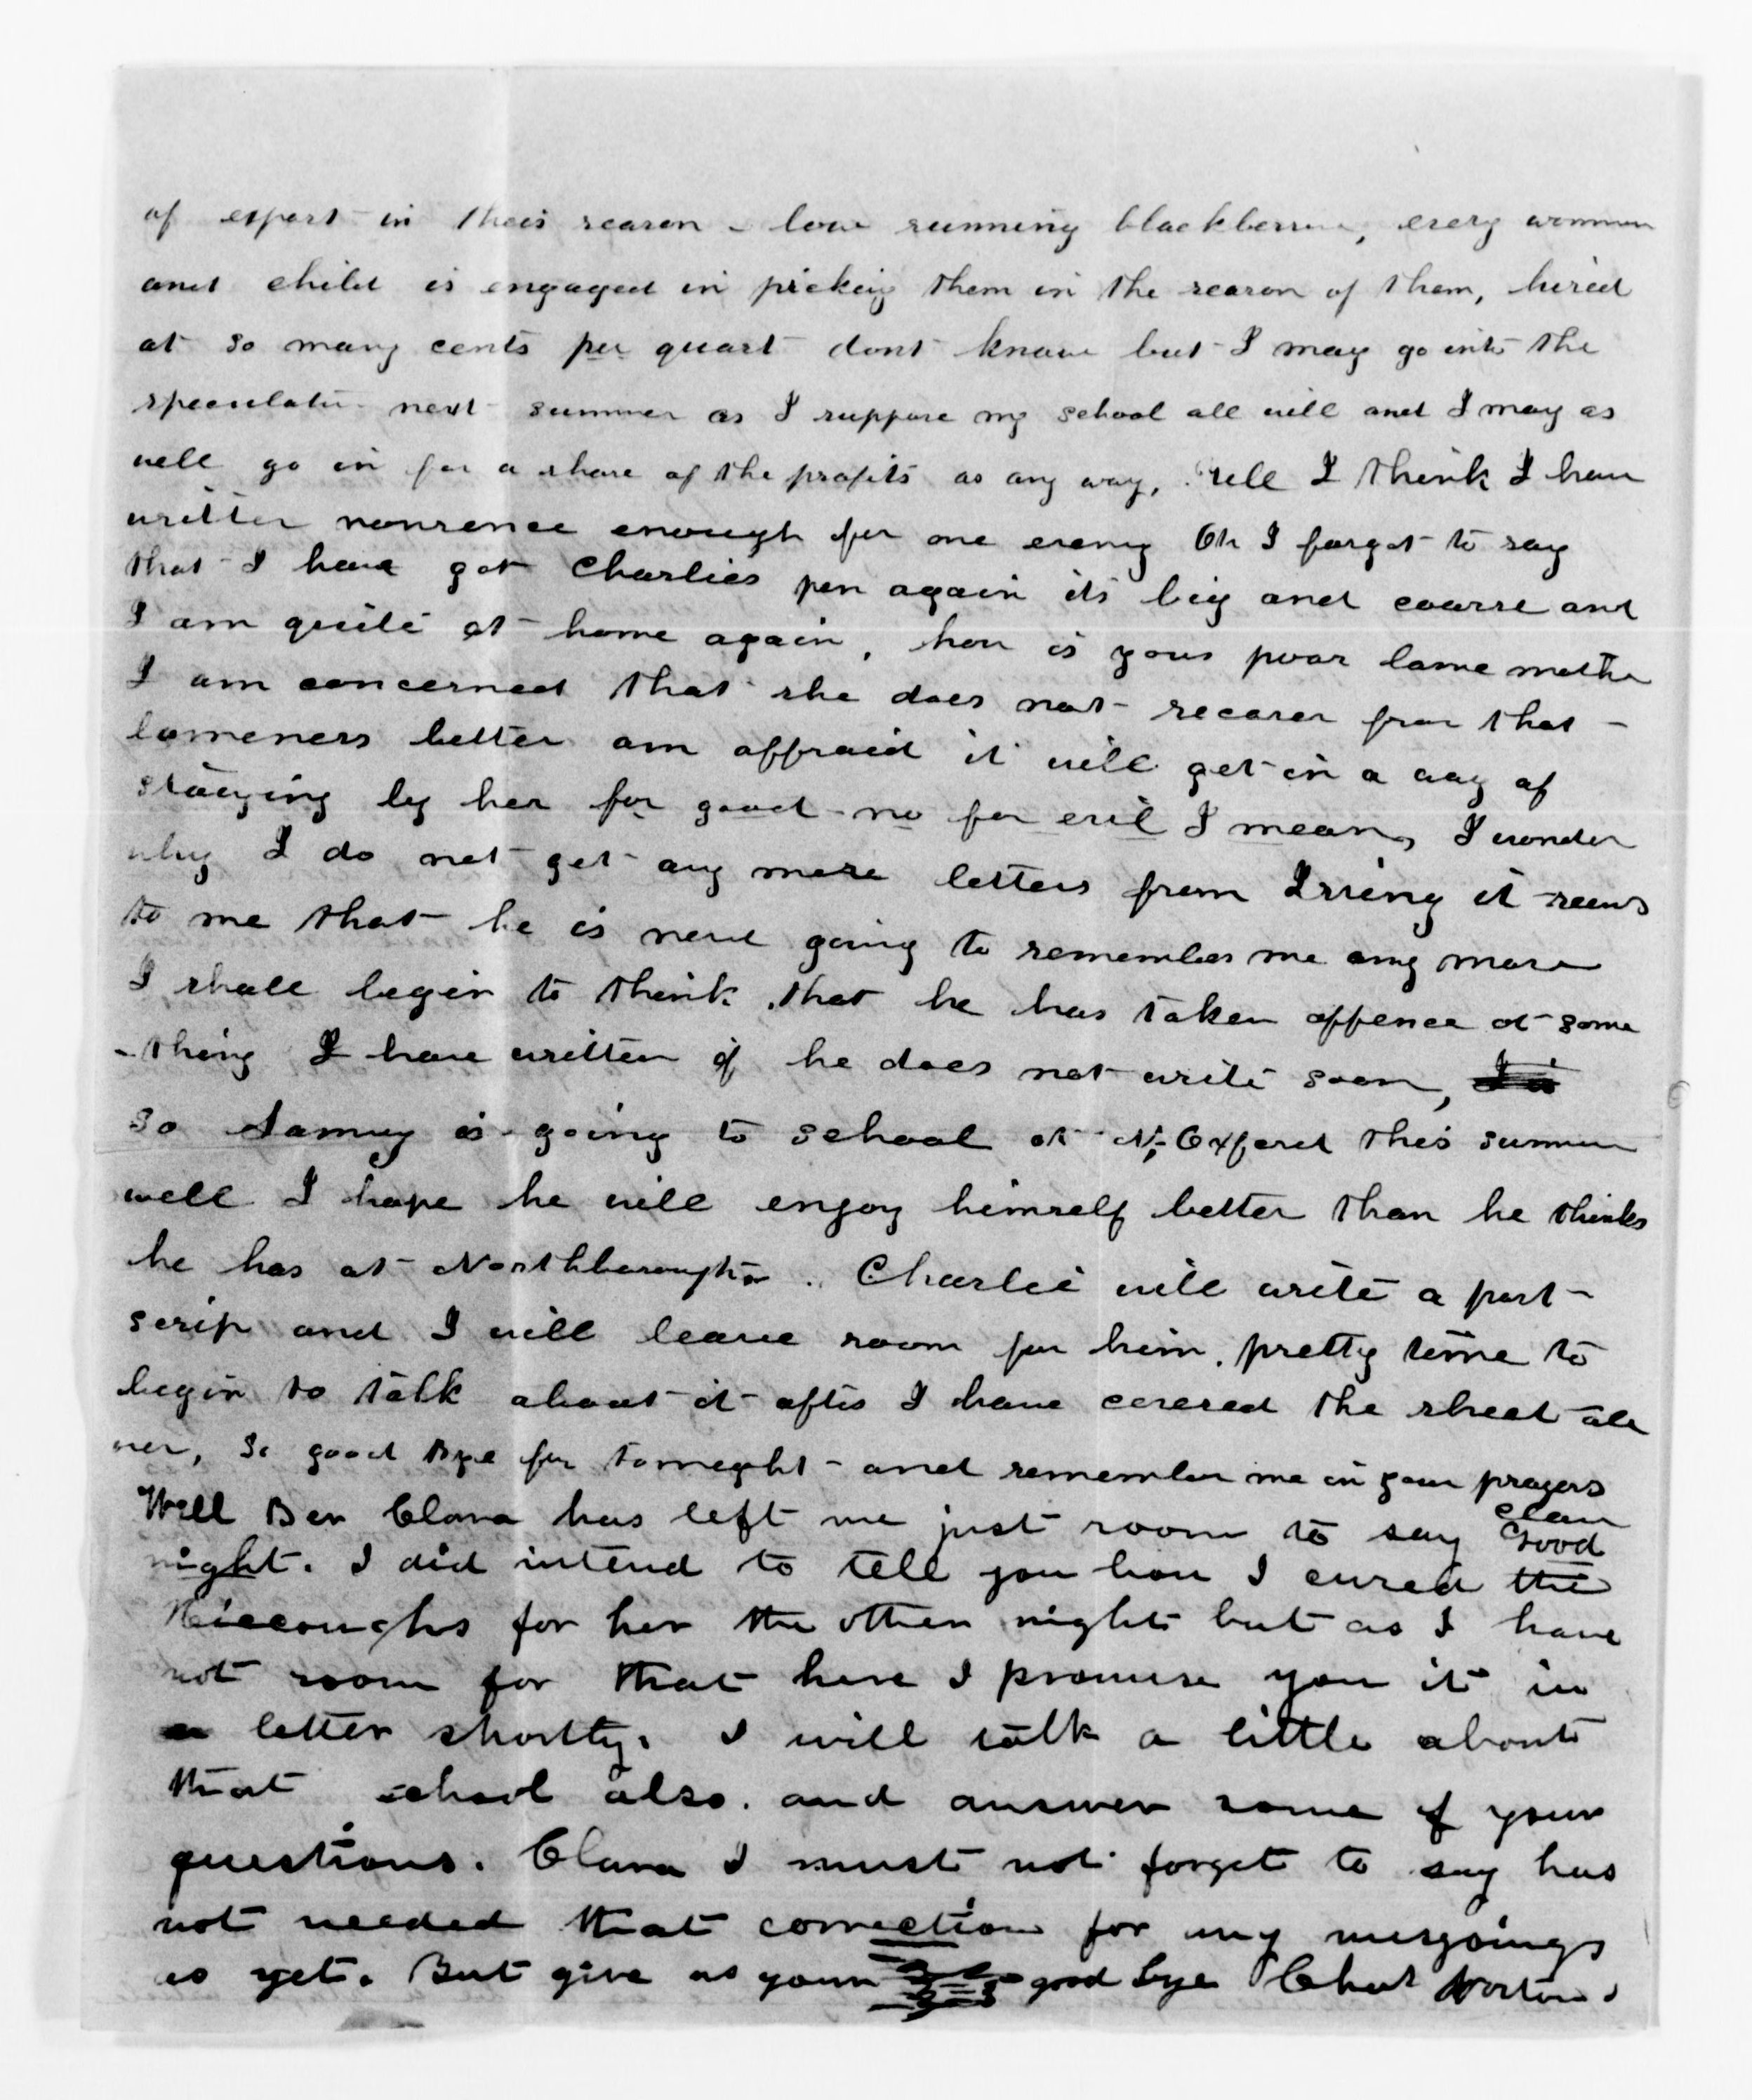 of export in their season - low running blackberries, every woman
and child is engaged in picking them in the season of them, hired
at so many cents per quart dont know but I may go into the
speculatin next summer as I suppose my school all will and I may as
well go in for a share of the profits as any way, Well I think I have
written nonsence enough for one evening Oh I forgot to say
that I have got Charlies pen again its big and coarse and
I am quite at home again, how is your poor lame mother
I am concerned that she does not recover from that
lameness better am affraid it will get in a way of
staying by her for good no for evil I mean, I wonder
why I do not get any more letters from Irving it seems
to me that he is never going to remember me any more
I shall begin to think that he has taken offence at some
-thing I have written if he does not write soon,
so Samuy is going to school at N. Oxford this summer
well I hope he will enjoy himself better than he thinks
he has at Northborough. Charlie will write a post-
scrip and I will leave room for him. pretty time to
begin to talk about it after I have covered the sheet all
over, So good bye for tonight and remember me in your prayers
Clara
Well Ben Clara has left me just room to say Good
night. I did intend to tell you how I cured the
Hiccoughs for her the other night but as I have
not room for that here I promise you it in
a letter shortly. I will talk a little about
that school also. and answer some of your
questions. Clara I must not forget to say has
not needed that correction for any misgoings
as yet. But give us your good bye Chas Norton.